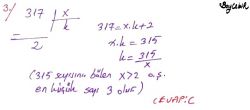 3/ 317 | x
k
2
317 = x.k + 2
x.k = 315
k = 315/x
(315 sayısını bölen x>2 o.ş.
en küçük sayı 3 olur)
CEVAP: C